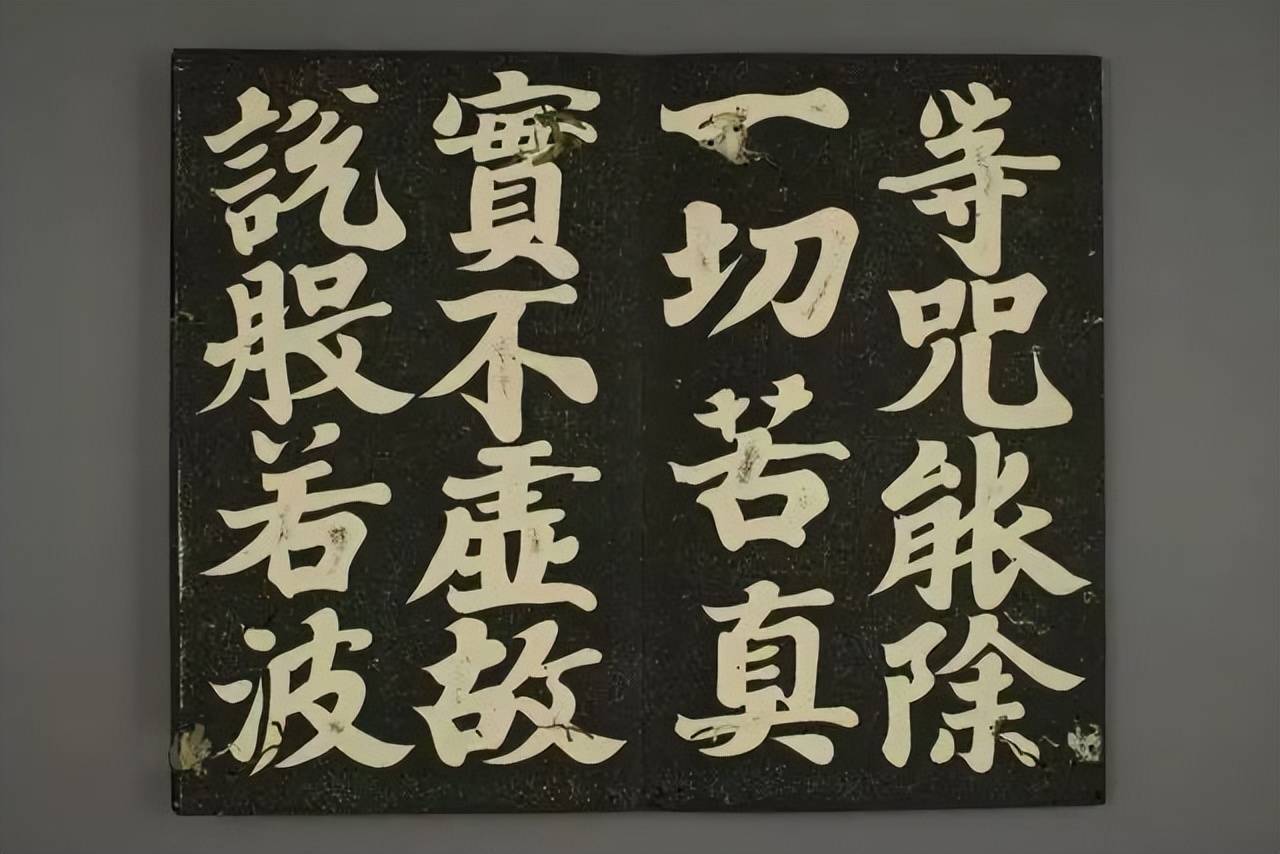 等咒能除
一切苦真
實不虛故
説般若波